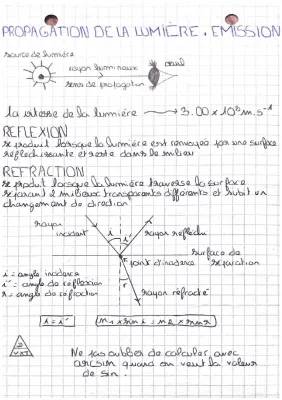 PROPAGATION DE LA LUMIÈRE. EMISSION
source de lumière
rayon lumineux
œil
sens de propagation
la vitesse de la lumière → 3.00 x 10⁸ m.s⁻¹
REFLEXION
se produit lorsque la lumière est renvoyée par une surface
réfléchissante et reste dans le milieu
REFRACTION
se produit lorsque la lumière traverse la surface
séparant 2 milieux transparents différents et subit un
changement de direction
rayon
incident
i
i'
rayon réfléchi
surface de
séparation
point d'incidence
i = angle incidence
i' = angle de réflexion
r = angle de réfraction
r
rayon réfracté
i = i'
n1 x sin i = n2 x sin r
Ne pas oublier de calculer avec
arcsin quand on veut la valeur
de sin.